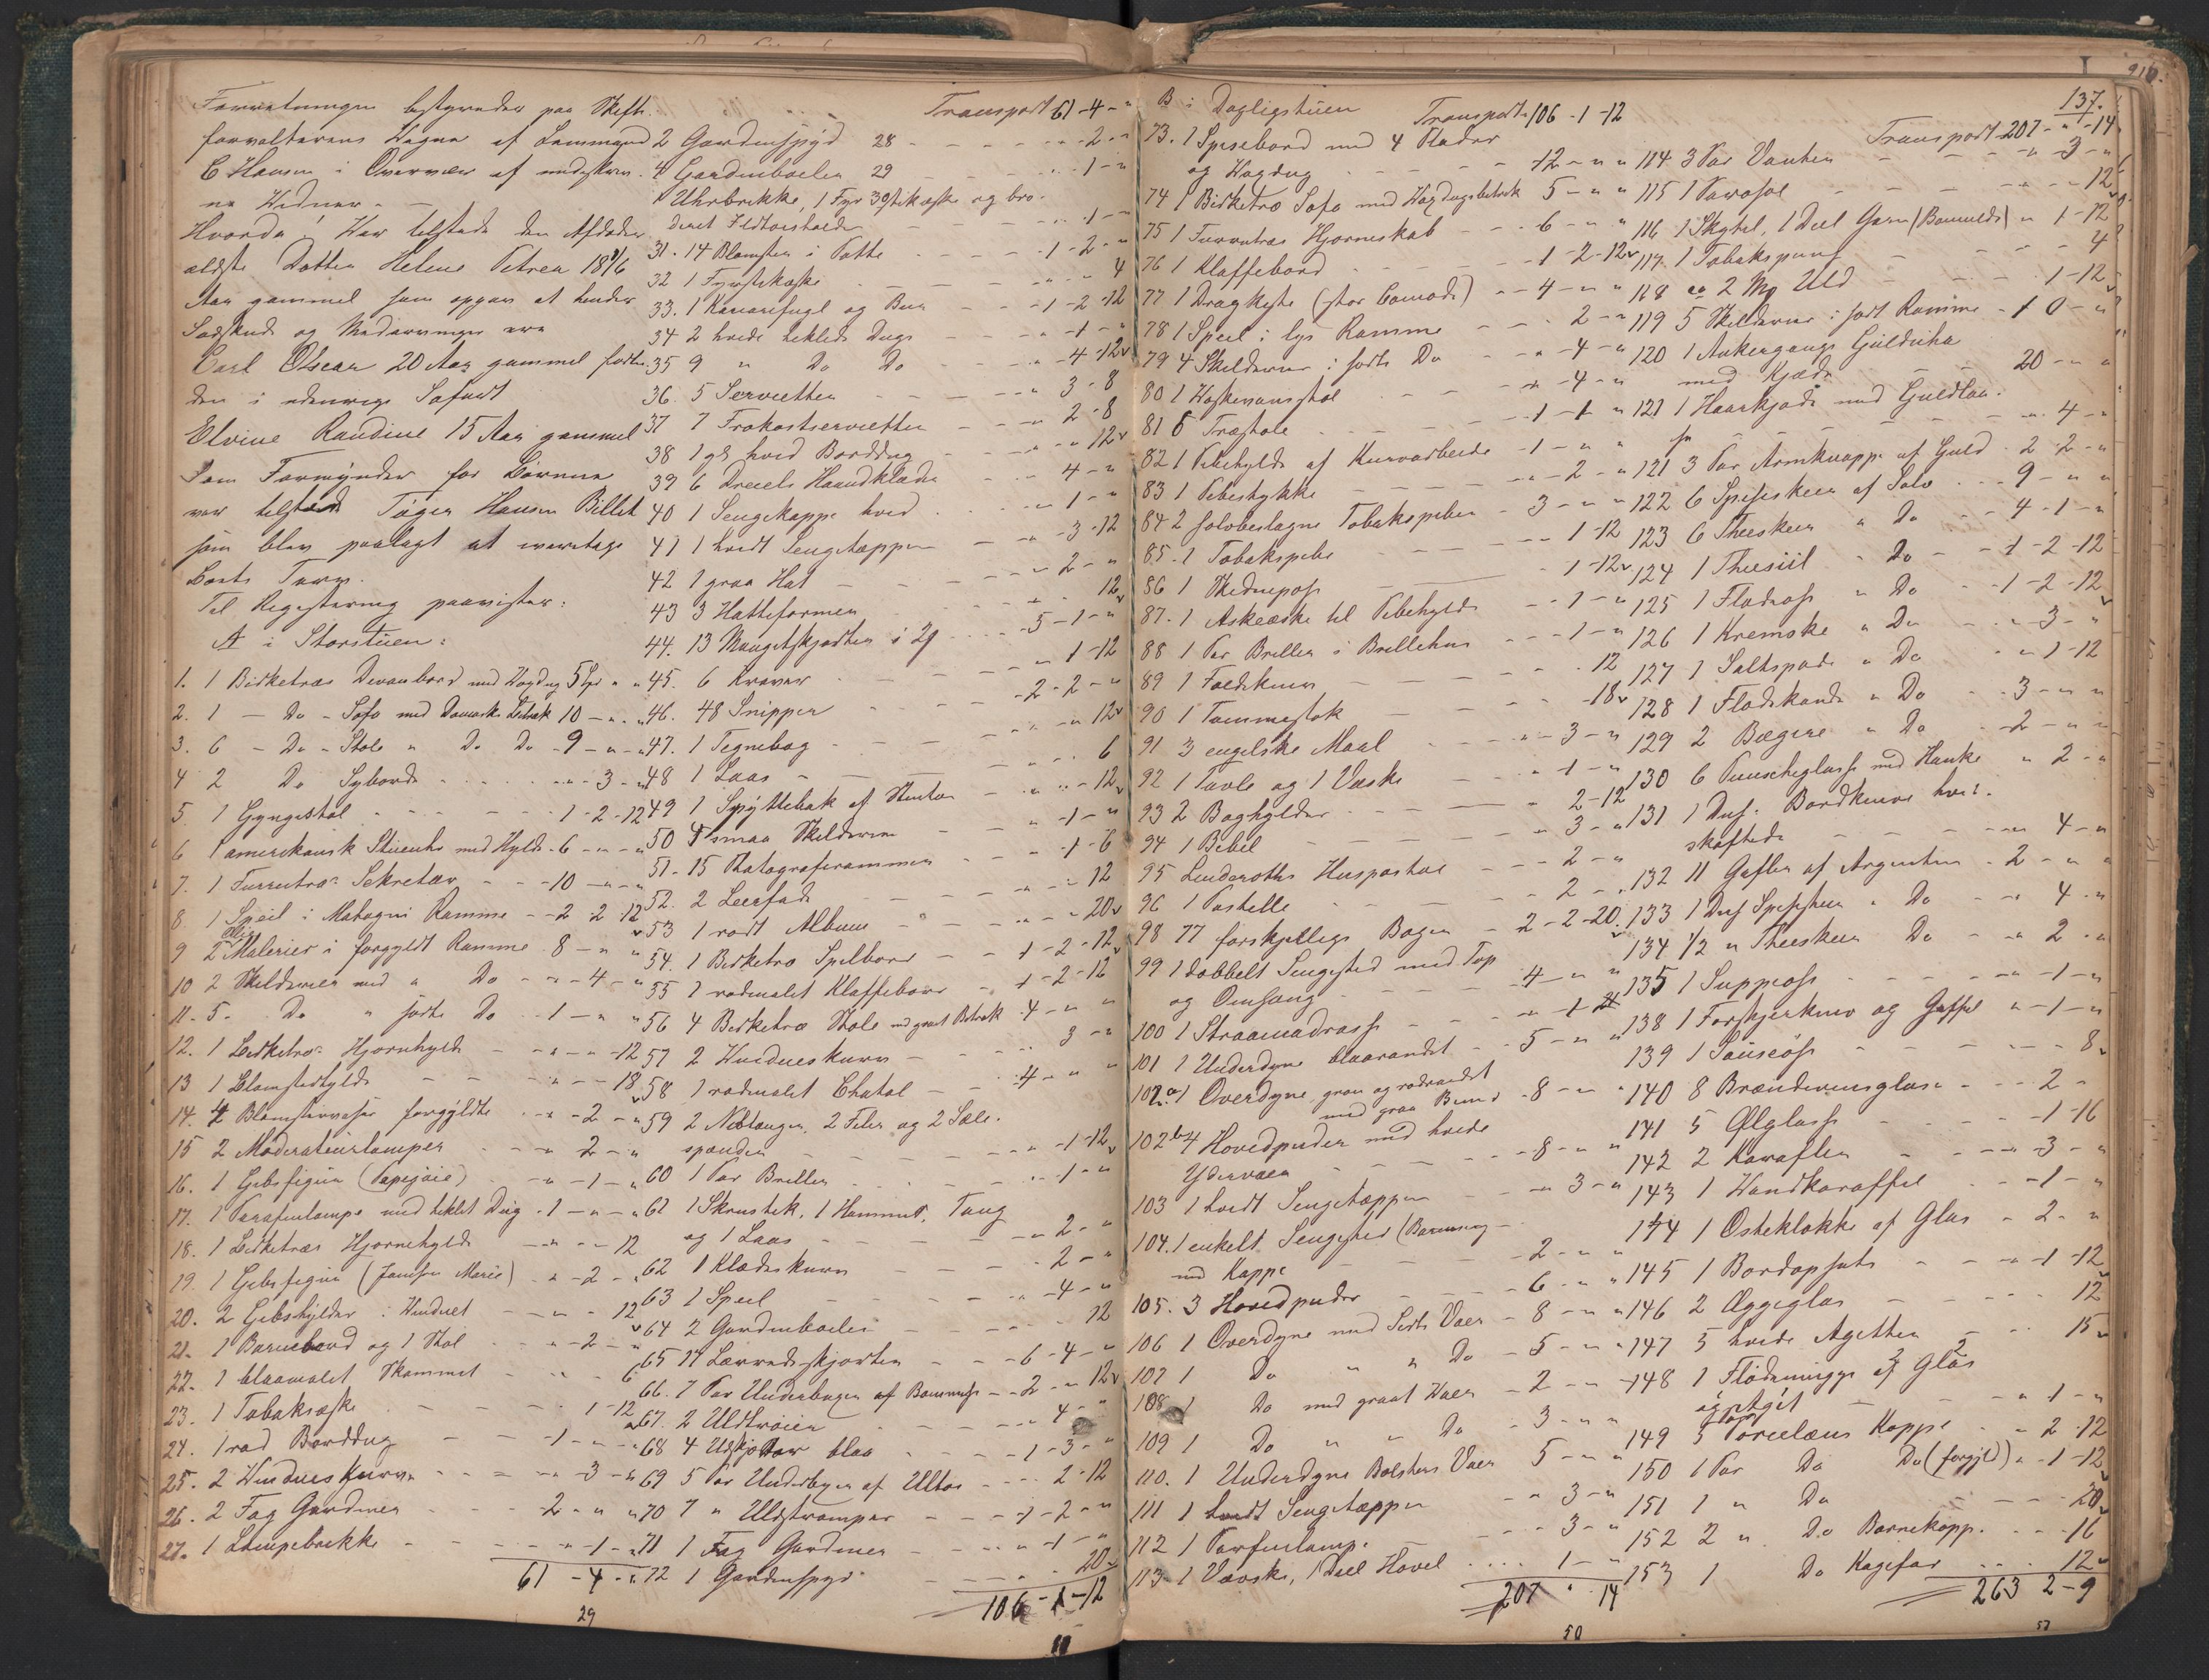 Forretningen bestyredes paa Skifte-
forvalterens Vegne af Lensmand
C Hansen i Overvær af underskrev-
ne Vidner. -
Hvorda! Var tilstede den Afdødes
ældste Datter Helene Petrea 18 5/6
Aar gammel som opgav at hendes
Sødskende og Medarvinger ere
Carl Oscar 20 Aar gammel forti-
den i udenrigs Søfart
Elvine Randine 15 Aar gammel
Som Formynder for Børnene
var tilstede Tøger Hansen Billet
som blev paalagt at ivaretage
Boets Tarv.
Til Registrering paavistes:
A i Storstuen:
1. 1 Birketræs Divanbord med Voxdug 5 Spd " "
2. 1 — Do - Sofa med Damasks Betræk 10 — " "
3. 6 - Do - Stole " Do Do - 9 - " - "
4 2 Do Syborde - " - 3 - "
5 1 Gyngestol - 1 - 2 - 12
6 1 amerikansk Stueuhr med Hylde - 6 - " - "
7. 1 Furutræs Sekretær - 10 - " - "
8. 1 Speil i Mahogni Ramme - 2 2 12
9 2 Olie Malerier i forgyldt Ramme 8 - " "
10 2 Skilderier med " Do - " - 4 - "
11. 5. Do " sorte Do - 1 - " "
12. 1 Birketræs Hjørnhylde - " - " - 12
13 1 Blomsterhylde - " - - 18
14. 4 Blomstervaser forgyldte - " - 2 - "
15 2 Moderateurlamper - " 2 - "
16. 1 Gibsfigur (Papegøie) - " - 1 - "
17. 1 Parafinlampe med heklet Dug - 1 - " - "
18. 1 Birketræs Hjørnehylde - " - - 12
19. 1 Gibsfigur (Jomfru Marie) - " - 2 - "
20. 2 Gibshylder i Vinduet - " - 12
21. 1 Barnebord og 1 Stol - " - 2 - "
22. 1 blaamalet Skammel - " - 6
23. 1 Tobaksæske - 1 - 12
24. 1 rød Borddug - 1 - " - "
25. 2 Vindueskurve - " - 3 - "
26. 2 Fag Gardiner - 2 - " "
27. 1 Lampebrikke - " - 1 - "
61 - 4 - "
29
Transport 61 - 4 - "
2 Gardinspyd 28 - 2 - "
4 Gardinbøiler 29 - 1 - "
1 Uhrbrikke, 1 Fyrstikæske og bro-
deret Ildtørstæder - 1 - "
31. 14 Blomster i Potte - 1 - 2 - "
32 1 Fyrstikæske - " - 4
33. 1 Kanarifugl og Bur - 1 - 2 - 12
34 2 hvide heklede Duge - " - 1 - "
35 9 " Do Do - " - 4 - 12
36. 5 Servietter - " 3 - 8
37 7 Frokostservietter - " 2 - 8
38 1 gl hvid Borddug - " - 12
39 6 Dreiels Haandklæder - 4 - "
40 1 Sengekappe hvid - 1 - "
41 1 hvidt Sengetæppe - " - 3 - 12
42 1 graa Hat - 2 - "
43 3 Hatteformer - 12
44. 13 Mangetskjorter i 2g - 5 - 1 - "
45. 6 Kraver - " 1 - 12
46. 48 Snipper - 2 - 2 - "
47. 1 Tegnebog - " 12
48 1 Laas - 6
49 1 Spyttebak af Stentøi - " - 12
50 4 smaa Skilderier - " - 1 - "
51 - 15 Fotografirammer - 1 - 6
52. 2 Leerfade - " - 12
53 1 rødt Album - " - 20
54. 1 Birketræ Spilbord - 1 - 2 - 12
55 1 rødmalet Klaffebord - 1 - 2 - 12
56 4 Birketræ Stole md graat Betræk 4 - " "
57 2 Vindueskurve - 3 - "
58 1 rødmalet Chatol - 4 - " "
59 2 Nebtænger, 2 Filer og 2 Sæle-
spænder - " - 1 - 12
60 1 Par Briller - 1 - "
61 1 Skrustik, 1 Hammer, Tang
og 1 Laas - " 2 - "
62 1 Klædeskurv - 2 - "
63 1 Speil - " - 4 - "
64 2 Gardinbøiler - 12
65 14 Lærredsskjorter - 6 - 4 - "
66. 7 Par Underbuxer af Bomuld - 2 - " 12
67. 2 Uldtrøier - 4 - "
68 4 Uldskjorter blaa - 1 - 3 - "
69 5 Par Underbuxer af Ultøi - 2 - 12
70 7 " Uldstrømper - 1 - 2 - "
71 1 Fag Gardiner - " - 1 - "
72 1 Gardinspyd - 20
106 - 1 - 12
B i Dagligstuen Transport 106 - 1 - 12
73. 1 Spisebord med 4 Plader
og Voxdug - 12 - " "
74 1 Birketræ Sofa med Voxdugsbetræk 5 - " "
75 1 Furutræs Hjørneskab - 6 - " "
76 1 Klaffebord - 1 - 2 - 12
77 1 Dragkiste (stor Comode) - 4 - " "
78 1 Speil i lys Ramme - 2 - "
79 4 Skilderier i sorte Do - " - 4 - "
80 1 Voxkranstol - " - 4 - "
81 6 Træstole - 1 - 1 - "
82 1 Pibehylde af Kurvarbeide - 1 - " "
83 1 Pibestykke - " - 2 - "
84 2 sølvbeslagne Tobakspiber - 3 - " "
85. 1 Tobakspibe - 1 12
86 1 Skindpose - 1 - 12
87. 1 Askeæske til Pibehylde - 1 - "
88 1 Par Briller i Brillehus - 1 - "
89 1 Foldekniv - 12
90 1 Tommestok - 18
91 3 engelske Maal - " - 3 - "
92 1 Tavle og 1 Væske - " - 1 - "
93 2 Boghylder - " 2 - 12
94 1 Bibel - " 3 - "
95 Linderoths Huspostil - 2 - "
96 1 Postille - 2 - "
98 77 forskjellige Bøger - 2 - 2 - 20
99 1 dobbelt Sengested med Top
og Omhæng - 4 - " "
100 1 Straamadrasse - " - 1
101 1 Underdyne blaarandet - 5 - " "
102 a 1 Overdyne graa og rødrandet
med graa Bund - 8 - " "
102 b 4 Hovedpuder med hvide
Ydervaer - 8 - " "
103 1 hvidt Sengetæppe - " 3 - "
104. 1 enkelt Sengested (Barneseng -
md Kappe - 2 - " "
105. 3 Hovedpuder - 6 - " "
106 1 Overdyne med Sirts Vaer - 8 - " "
107 1 Do " " Do - 5 - " "
108 1 Do med graat Vaer - 2 - " "
109 1 Do " " Do - 3 - " "
110. 1 Underdyne Bolsters Vaer 5 - " "
111 1 hvidt Sengetæppe - " 3 - "
112 1 Parfinlampe - 3 - "
113 1 Vævske, 1 Deel Høvel - 1 - "
207 " 14
50
137.
Transport 207 - " - 14
114 3 Par Vanter - " - 3 - "
115 1 Parasol - " - 12
116 1 Skytel, 1 Deel Garn (Bomulds) " 1 - 12
117 1 Tobakspung - 4
118 ca 2 Mg Uld - 1 - 12
119 5 Skilderier i sort Ramme - 1 0 - "
120 1 Ankergangs Guldur
med Kjæde - 20 - " "
121 1 Haarkjæde med Guldlaa-
se - " 4 - "
121 3 Par Armknapper af Guld - 2 - 2 - "
122 6 Spiseskeer af Sølv - 9 - " "
123 6 Theskeer " Do - 4 - 1 - "
124 1 Theesiil " Do - 1 - 2 - 12
125 1 Flødeøse " Do - 1 - 2 - 12
126 1 Kremske " Do - " - 3 - "
127 1 Saltspade " Do - " 1 - 12
128 1 Flødekande " Do - 3 - " "
129 2 Bægere " Do - 2 - " "
130 6 Puncheglasse med Hanke " 2 - "
131 1 Dus. Bordknive hvid-
skaftede - " 4 - "
132 11 Gafler af Argentin - 2 - " "
133 1 Dus Spiseskeer " Do - " 4 - "
134 1/2 " Theeskeer Do - " 2 - "
135 1 Suppeøse - " - 1 - "
138 1 Forskjerkniv og Gaffel " - 1 - "
139 1 Sauseøse - 8
140 8 Brændevinsglase - 2 -
141 5 Ølglasse - 1 - 16
142 2 Karafler - " 3 - "
143 1 Vandkaraffel - 1 - "
144 1 Osteklokke af Glas - 2 - "
145 1 Bordopsats - " - 1 - 12
146 2 Æggeglas - 12
147 5 hvide Asietter - 15
148 1 Flødemugge af Glas
- " 1 - "
149 5 Par Porcelæns Kopper - 2 - 12
150 1 Par Do Do (forgyldt) " - 1 - 12
151 1 " Do - 20
152 2 " Do Barnekopp. - 16
153 1 Do Kagefad - 12
263 2 - 9